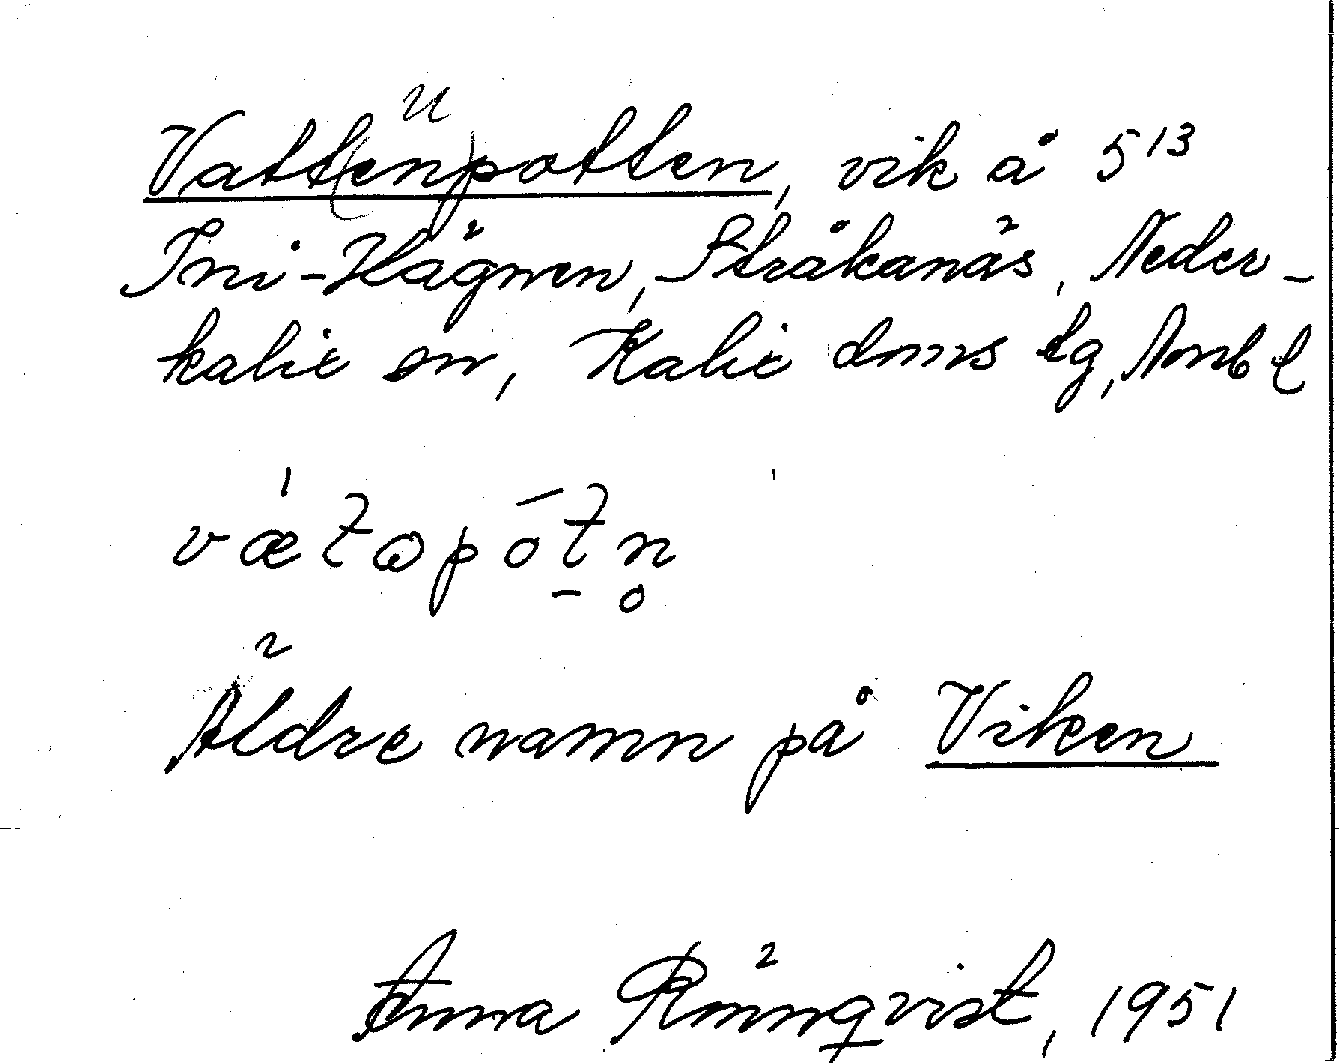 u
Vattenpotten, vik å 5¹³
Ini-Hägnen, Stråkanäs, Neder-
kalix sn, Kalix doms lg, Nnb l
væ̀tapótn̥
Äldre namn på Viken
Anna Rönnqvist, 1951